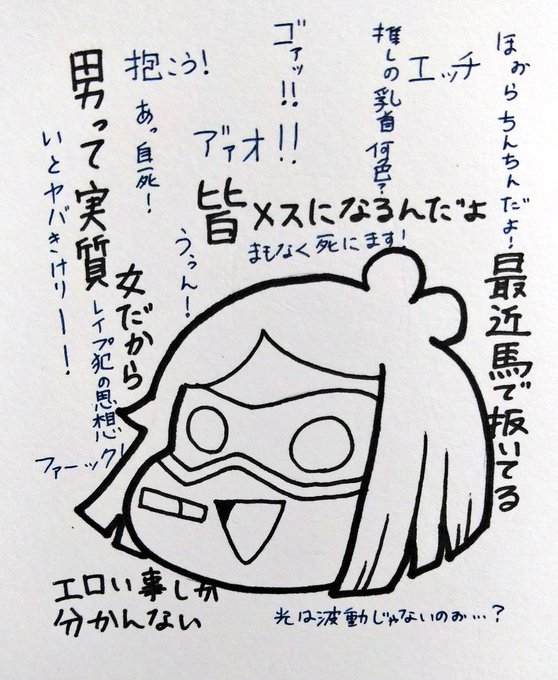 ほぉらちんちんだよ!
エッチ
推しの乳首何色?
ゴァッ!!
抱こう!
男って実質
女だから
あっ自死!
いとヤバきけりーー!
アヴァオ!!
皆メスになるんだよ
まもなく死にます!
うぅん!
最近馬で抜いてる
レイプ犯の思想
ファーック!
エロい事しか
分かんない
光は波動じゃないのぉ…?